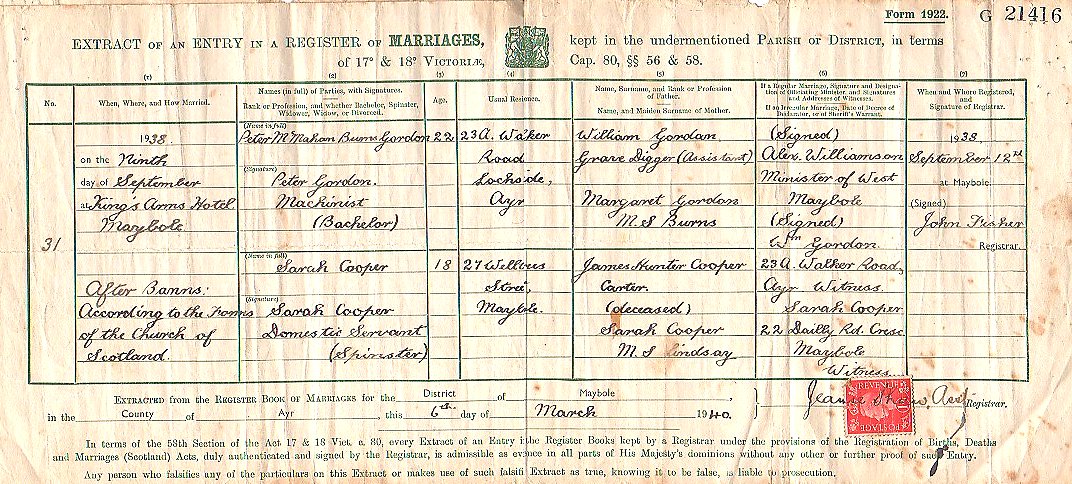 Form 1922. G 21416
EXTRACT OF AN ENTRY IN A REGISTER OF MARRIAGES, kept in the undermentioned PARISH OR DISTRICT, in terms
of 17° & 18° VICTORIÆ, Cap. 80, §§ 56 & 58.
(1) (2) (3) (4) (5) (6) (7)
No.
When, Where, and How Married.
Names (in full) of Parties, with Signatures.
Rank or Profession, and whether Bachelor, Spinster,
Widower, Widow, or Divorced.
Age.
Usual Residence.
Name, Surname, and Rank or Profession
of Father.
Name, and Maiden Surname of Mother.
If a Regular Marriage, Signature and Designa-
tion of Officiating Minister, and Signatures
and Addresses of Witnesses.
If an Irregular Marriage, Date of Decree of
Declarator, or of Sheriff's Warrant.
When and Where Registered,
and
Signature of Registrar.
31
1938.
on the Ninth
day of September
at King's Arms Hotel
Maybole
After Banns:
According to the Forms
of the Church of
Scotland.
(Name in full)
Peter McMahan Burns Gordon
(Signature)
Peter Gordon.
Machinist
(Bachelor)
22
23A. Walker
Road
Lochside,
Ayr
William Gordan
Grave Digger (Assistant)
Margaret Gordon
M.S Burns
(Signed)
Alex. Williamson
Minister of West
Maybole
(Signed)
Wm Gordon
23A. Walker Road,
Ayr Witness.
Sarah Cooper
22 Dailly Rd. Cresc
Maybole
Witness
1938.
September 12th
at Maybole.
(Signed)
John Fisher
Registrar.
(Name in full)
Sarah Cooper
(Signature)
Sarah Cooper
Domestic Servant
(Spinster)
18
27 Welltrees
Stree,
Maybole.
James Hunter Cooper
Carter.
(deceased)
Sarah Cooper
M.S Lindsay
EXTRACTED from the REGISTER BOOK OF MARRIAGES for the District of Maybole
in the County of Ayr this 6th day of March 1940.
Registrar.
REVENUE
POSTAGE
In terms of the 58th Section of the Act 17 & 18 Vict. c. 80, every Extract of an Entry i the Register Books kept by a Registrar under the provisions of the Registration of Births, Deaths
and Marriages (Scotland) Acts, duly authenticated and signed by the Registrar, is admissible as ev nce in all parts of His Majesty's dominions without any other or further proof of such Entry.
Any person who falsifies any of the particulars on this Extract or makes use of such falsifi Extract as true, knowing it to be false, is liable to prosecution.